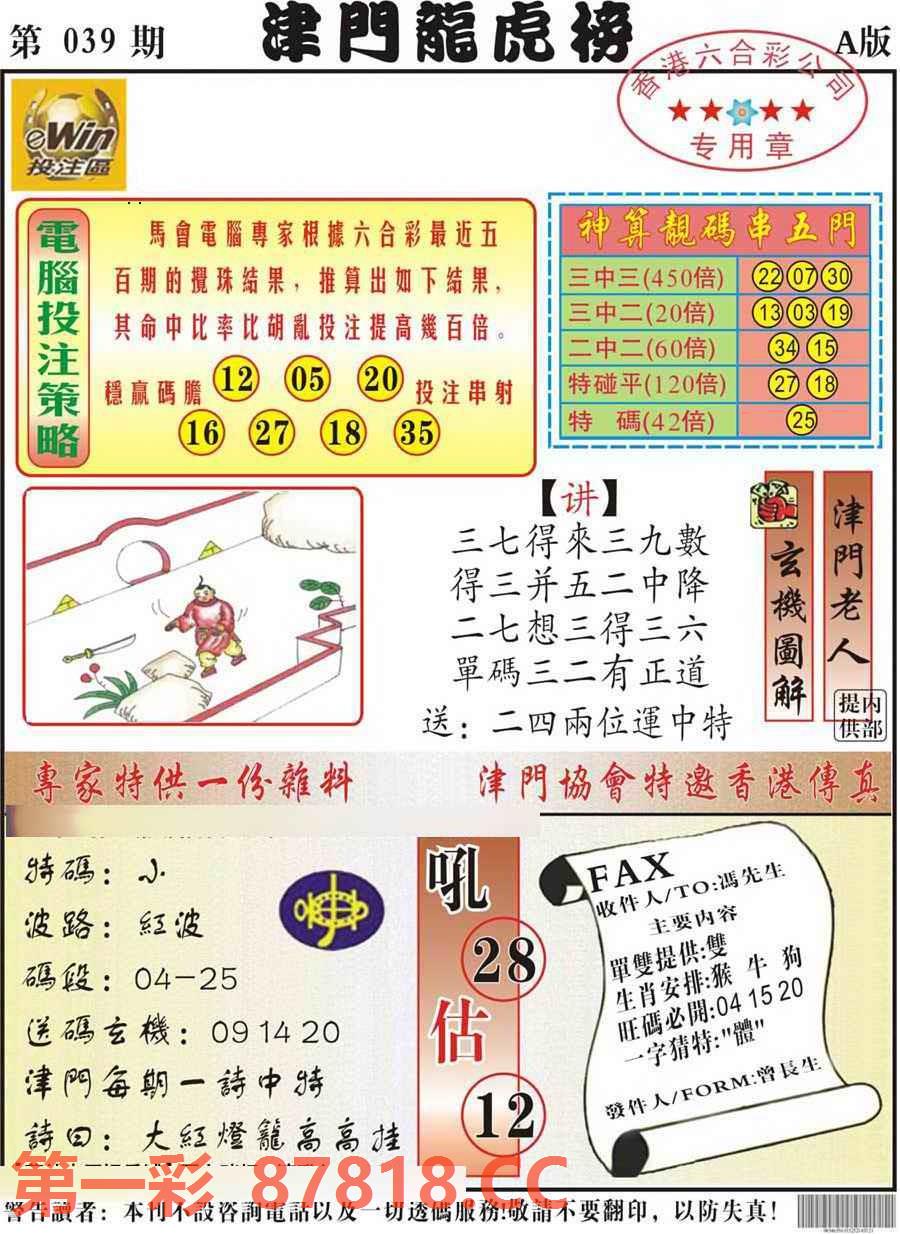 第 039 期
津門龍虎榜
A版
香港六合彩公司
专用章
eWin
投注區
電腦投注策略
馬會電腦專家根據六合彩最近五
百期的攪珠結果，推算出如下結果，
其命中比率比胡亂投注提高幾百倍。
穩贏碼膽 12 05 20 投注串射
16 27 18 35
神算靚碼串五門
三中三(450倍) 22 07 30
三中二(20倍) 13 03 19
二中二(60倍) 34 15
特碰平(120倍) 27 18
特 碼(42倍) 25
【讲】
三七得來三九數
得三并五二中降
二七想三得三六
單碼三二有正道
送：二四兩位運中特
玄機圖解
津門老人
内部提供
專家特供一份雜料
津門協會特邀香港傳真
特碼：小
波路：紅波
碼段：04-25
送碼玄機：09 14 20
津門每期一詩中特
詩曰：大紅燈籠高高挂
吼
28
估
12
FAX
收件人/TO:馮先生
主要内容
單雙提供:雙
生肖安排:猴 牛 狗
旺碼必開:04 15 20
一字猜特:"體"
發件人/FORM:曾長生
第一彩 87818.CC
警告讀者：本刊不設咨詢電話以及一切透碼服務!敬請不要翻印，以防失真!